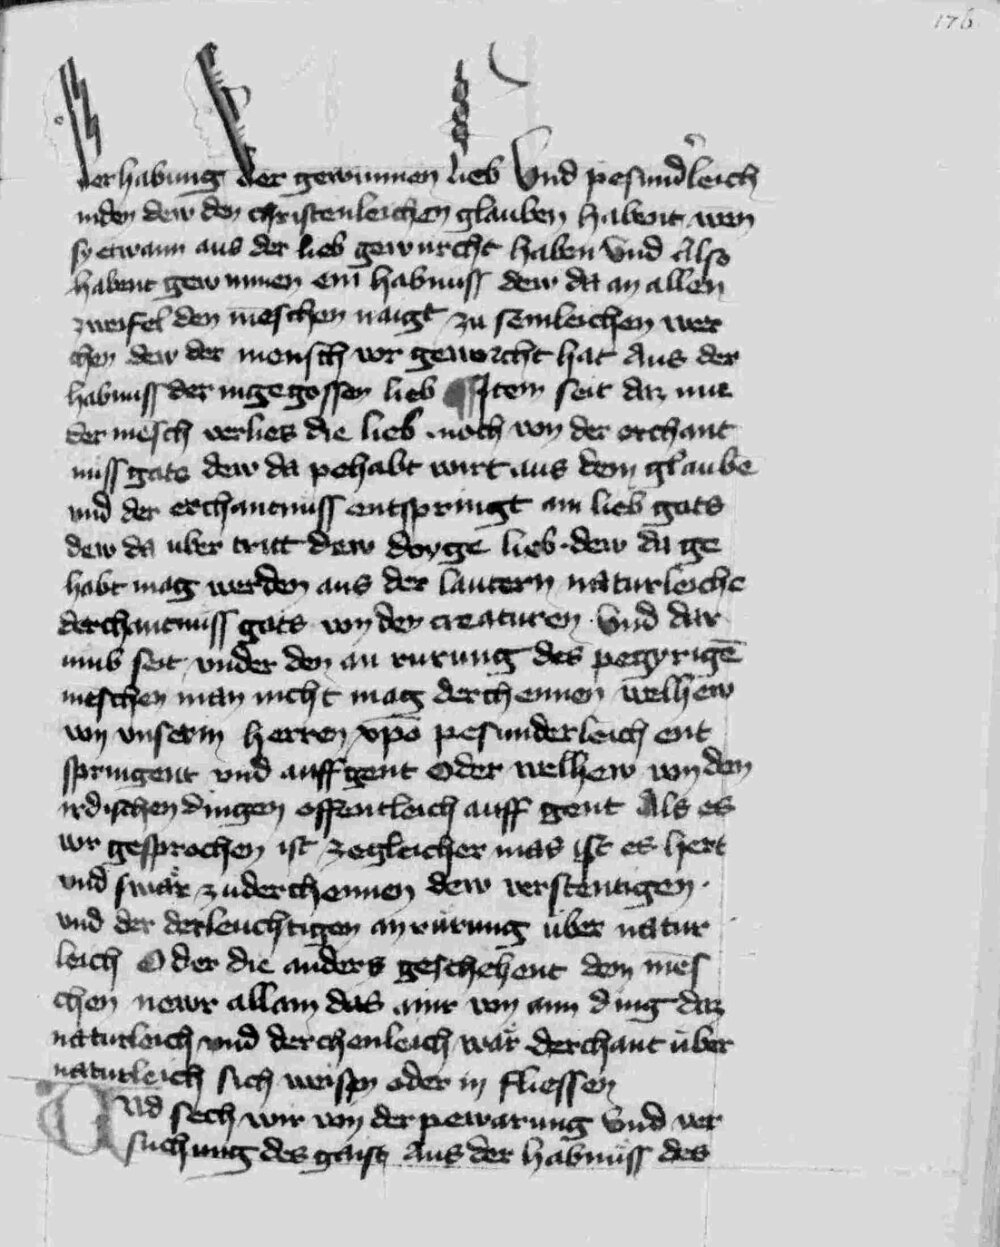 176
der habung der gewunnen lieb Und pesunderleich
in den dew den christenleichen glauben habent wen
sy etwann aus der lieb gewurcht haben Und Also
habent gewunnen ein habnuss dew da an allen
zweifel den meschen naigt zu semleichen wer
chen dew der mensch vor geworcht hat Aus der
habnuss der ingegossen lieb ¶ Item seit daz nur
der mesch verlies die lieb noch von der erchant
nuss gots dew da pehabt wirt aus dem glaube
und der erchantnuss entspringt ain lieb gots
dew da uber tritt dew doyge lieb · dew da ge
habt mag werden aus der lautern naturleiche
derchantnuss gots von den creaturen · Und dar
umb seit under den an rurung des pegyrige
meschen man nicht mag derchennen welhew
von unserm herren xpo pesunderleich ent
springent und auffgent Oder welhew von den
irdischen dingen offentleich auff gent Als es
vor gesprochen ist zegleicher mas ist es hert
und swar zuderchennen dew verstentigen ·
und der derleuchtigen an rurung uber natur
leich Oder die anders geschehent dem mens
chen newr allain das mir von aim ding daz
naturleich und derchenleich war derchant uber
naturleich sich weisen oder in fliessen
Und sech wir von der pewarung Und ver
suchung des gaist Aus der habnuss des